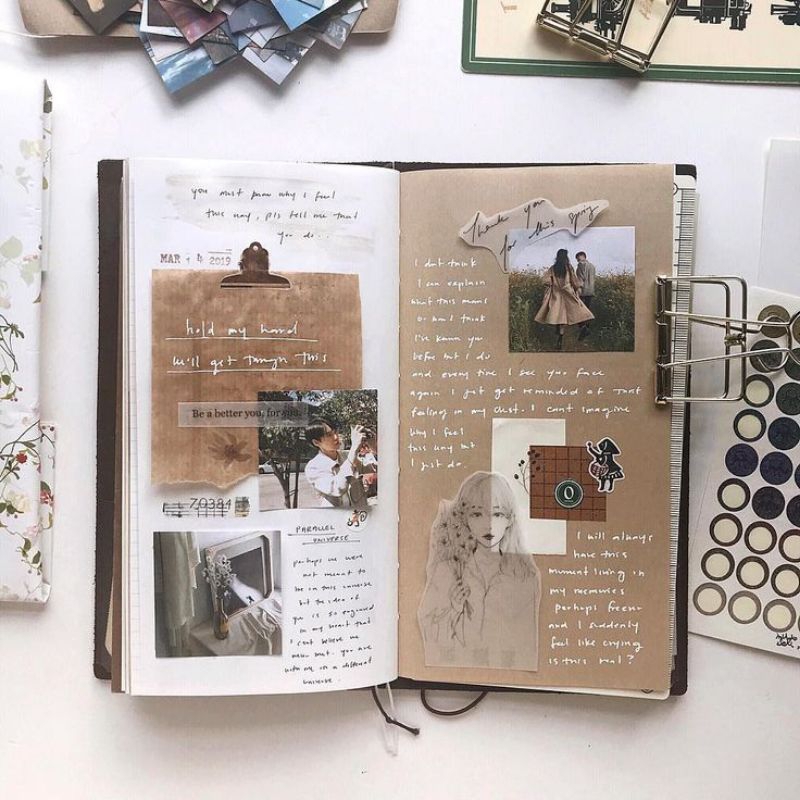 you must know why I feel
this way, pls tell me that
you do...
MAR 14 2019
hold my hand
we'll get through this
Be a better you, for you.
70384
PARALLEL
UNIVERSE
perhaps we were
not meant to
be in this universe
but the idea of
you is so engraved
in my heart that
I can't believe we
were not. you are
with me in a different
universe.
Thank you
for this spring
I don't think
I can explain
what this means
or how I think
I've known you
before but I do
and every time I see your face
again I just get reminded of that
feeling in my chest. I can't imagine
why I feel
this way but
I just do.
0
I will always
have this
moment living in
my memories
perhaps
and I suddenly
feel like crying
is this real?